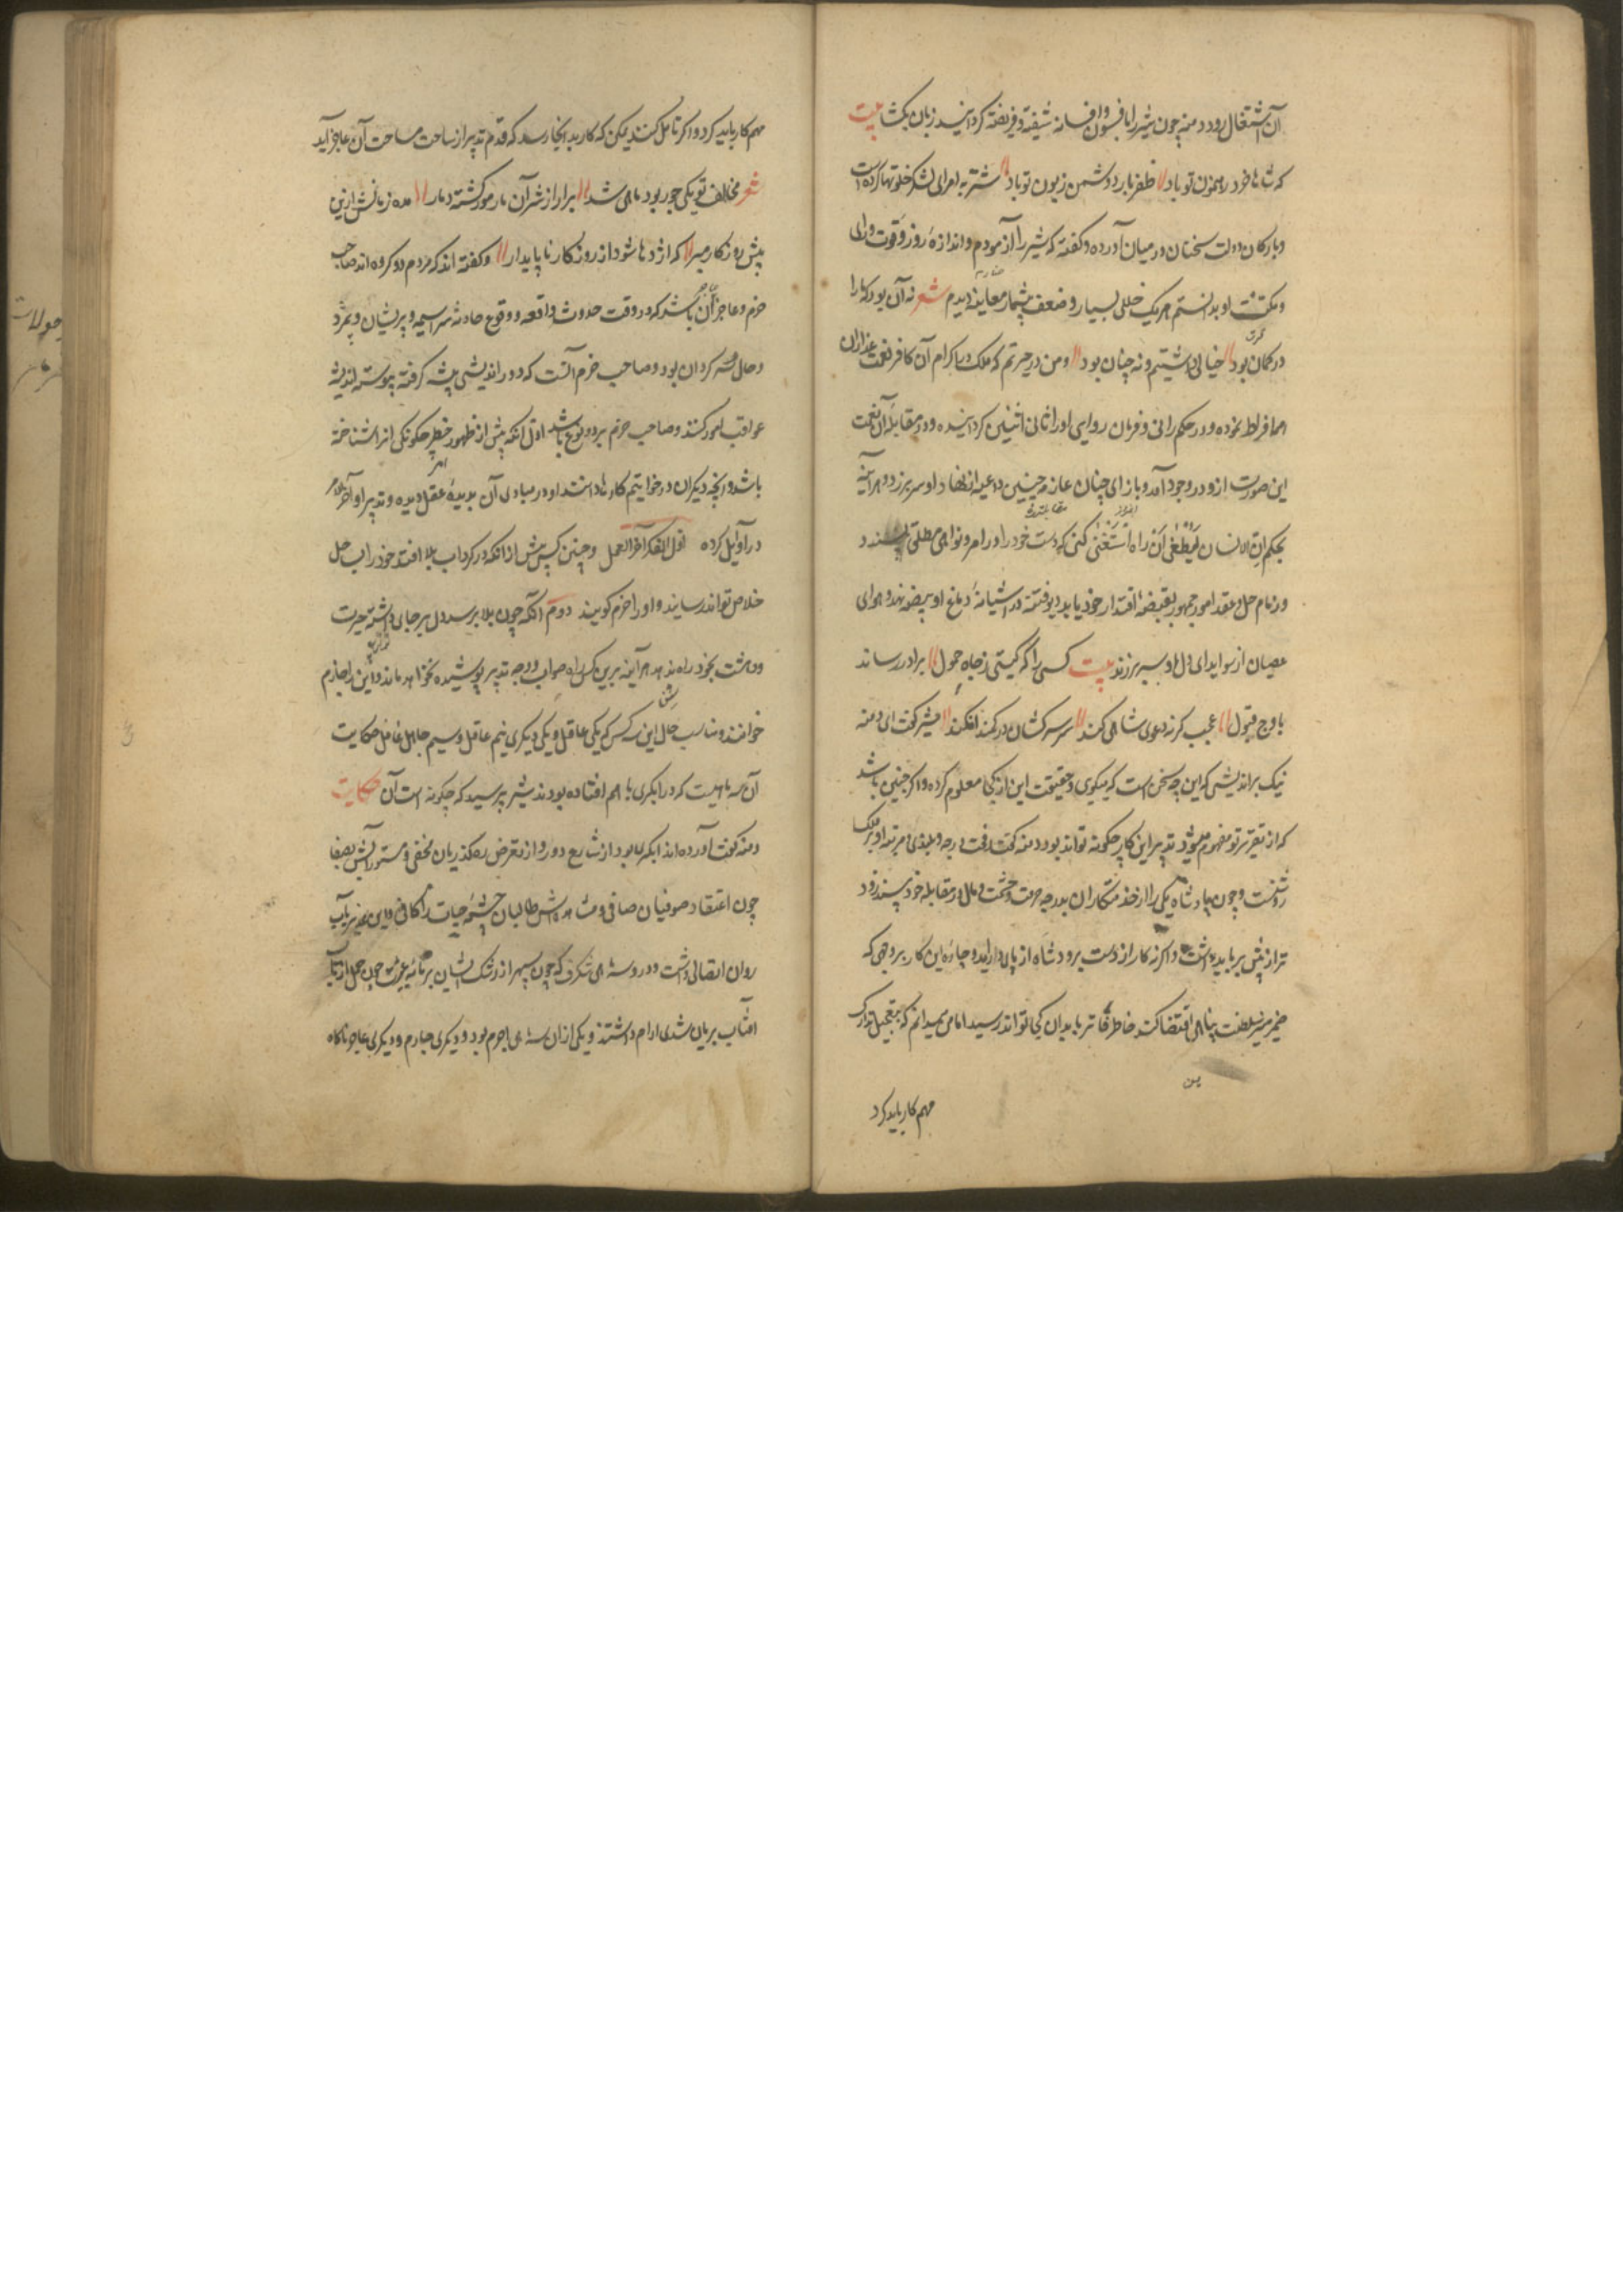 آن اشتغال رود دمنه چون شیر را بافسون و افسانه شیفته و فریفته کردانید زبان بکشاد بیت
که شاها خرد رهنمون تو باد ظفر یار و دشمن زبون تو باد شتربه با امرای لشکر خلوتها کرده است
و با ارکان دولت سخنان در میان آورده و کفته که شیر را آزمودم و اندازه روز و قوت و رای
و مکنت او بدانستم در هریک خللی بسیار و ضعف بیشمار معاینه دیدم شعر نه آن بود که ما را
در کمان بود خیالی داشتیم و نه چنان بود و من در حیرتم که ملک در اکرام آن کافر نعمت غدار آن
همه افراط نموده و در حکم رانی و فرمان روایی او را ثانی اثنین کردانیده و در مقابله آن نعمت
این صورت ازو در وجود آمد و بازای چنان عارفه چنین داعیه از نهاد او سر بر زد و هر آینه
بحکم ان الانسان لیطغی ان راه استغنی کسی که دست خود را در امر و نواهی مطلق بیند
و زمام حل و عقد امور جمهور بقبضه اقتدار خود یابد دیو فتنه در آشیانه دماغ او بیضه نهد و هوای
عصیان از سویدای دل او سر بر زند بیت کسی را که کیتی ز چاه خمول برآرد رساند
باوج قبول عجب کر نه دعوی شاهی کند سر سرکشان در کمند افکند شیر کفت ای دمنه
نیک براندیش که این چه سخن است که میکویی و حقیقت این از کجا معلوم کرده و اکر چنین باشد
که از تقریر تو مفهوم میشود تدبیر این کار چکونه تواند بود دمنه کفت رفعت درجه و بلندی مرتبه او بر ملک
روشنست و چون پادشاه یکی را از خدمتکاران بدرجه حرمت و حشمت و مال در مقابله خود بیند زود
تر از پیش بر باید داشت و اکر نه کار از دست برود و شاه از پای درآید و چاره این کار بر وجهی که
ضمیر منیر سلطنت پناهی اقتضا کند خاطر قاتر ما بدان کجا تواند رسید اما من میدانم که بتعجیل تدارک
مهم کار باید کرد
مهم کار باید کرد و اکر تامل کنند یمکن که کار بدانجا رسد که قدم تدبیر از ساحت مساحت آن عاجز آید
شعر مخالف تو یکی مور بود ماری شد برآر از سر آن مار مور کشته دمار مده زمانش ازین
بیش و روزکار مبر که اژدها شود از روزکار یابد مار و کفته اند که مردم دو کروه اند صاحب
حزم و عاجز عاجز آن باشد که در وقت حدوث واقعه و وقوع حادثه سراسیمه و پریشان و متردد
حال و سرکردان بود و صاحب حزم آنست که دور اندیشی پیشه کرفته پیوسته اندیشه
عواقب امور کنند و صاحب حزم بر دو نوع باشد اول آنکه پیش از ظهور خطر چکونکی آنرا شناخته
باشد و آنچه دیکران در خواتیم کارها دانند او در مبادی آن بدیده عقل دیده و تدبیر اواخر امور
در اوایل کرده اول الفکر آخر العمل و چنین کس پیش از آنکه در کرداب بلا افتد خود را بساحل
خلاص تواند رسانید و او را احزم کویند دوم آنکه چون بلا برسد دل بر جای داشته حیرت
و دهشت بخود راه ندهد هر آینه برین کس راه صواب و وجه تدبیر پوشیده نخواهد ماند و این را حازم
خوانند و مناسب حال این سه کس که یکی عاقل و یکی دیکری نیم عاقل و سیم جاهل غافل حکایت
آن سه ماهیست که در آبکیری با هم افتاده بودند شیر پرسید که چکونه است آن حکایت
دمنه کفت آورده اند آبکیری بود از شارع دور و از تعرض رهکذریان مخفی و مستور آبش بصفا
چون اعتقاد صوفیان صافی و مشاهده اش طالبان چشمه حیات را کافی و این غدیر بآب
روان اتصالی داشت و در و سه ماهی شکرف که چون سپهر از رشک ایشان بر تابه غیرت چون حمل از تاب
آفتاب بریان شدی آرام داشتند و یکی از آن سه ماهی احزم بود و دیکری حازم و دیکری عاجز ناکاه